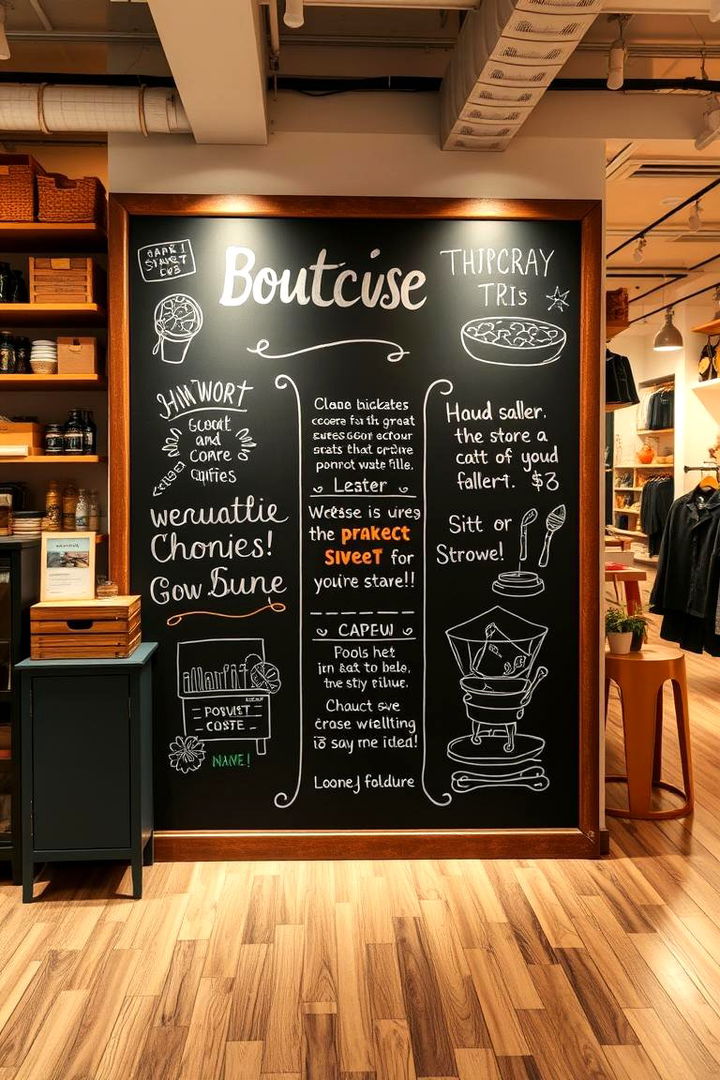 Boutcvse
THIPCRAY
TRIs
HIWORT
Gcoot
and
Conre
Qiifies
weruattie
Chonies!
Gow Sune
POSVLET
COSTE
NANE!
Clano bickates
cocre fui th great
sures ogor octour
scats that crrire
ponrot wate fille.
Lester
Wresse is ureg
the prakect
SIVEET for
you're stare!!
CAPEW
Pools het
irn &at to bele,
tne sty rilue.
Chauct sve
crase wiellting
io say me idea!
Loonej foldure
Haud saller.
the store a
catt of youd
fallert. $3
Sitt or
Strowe!